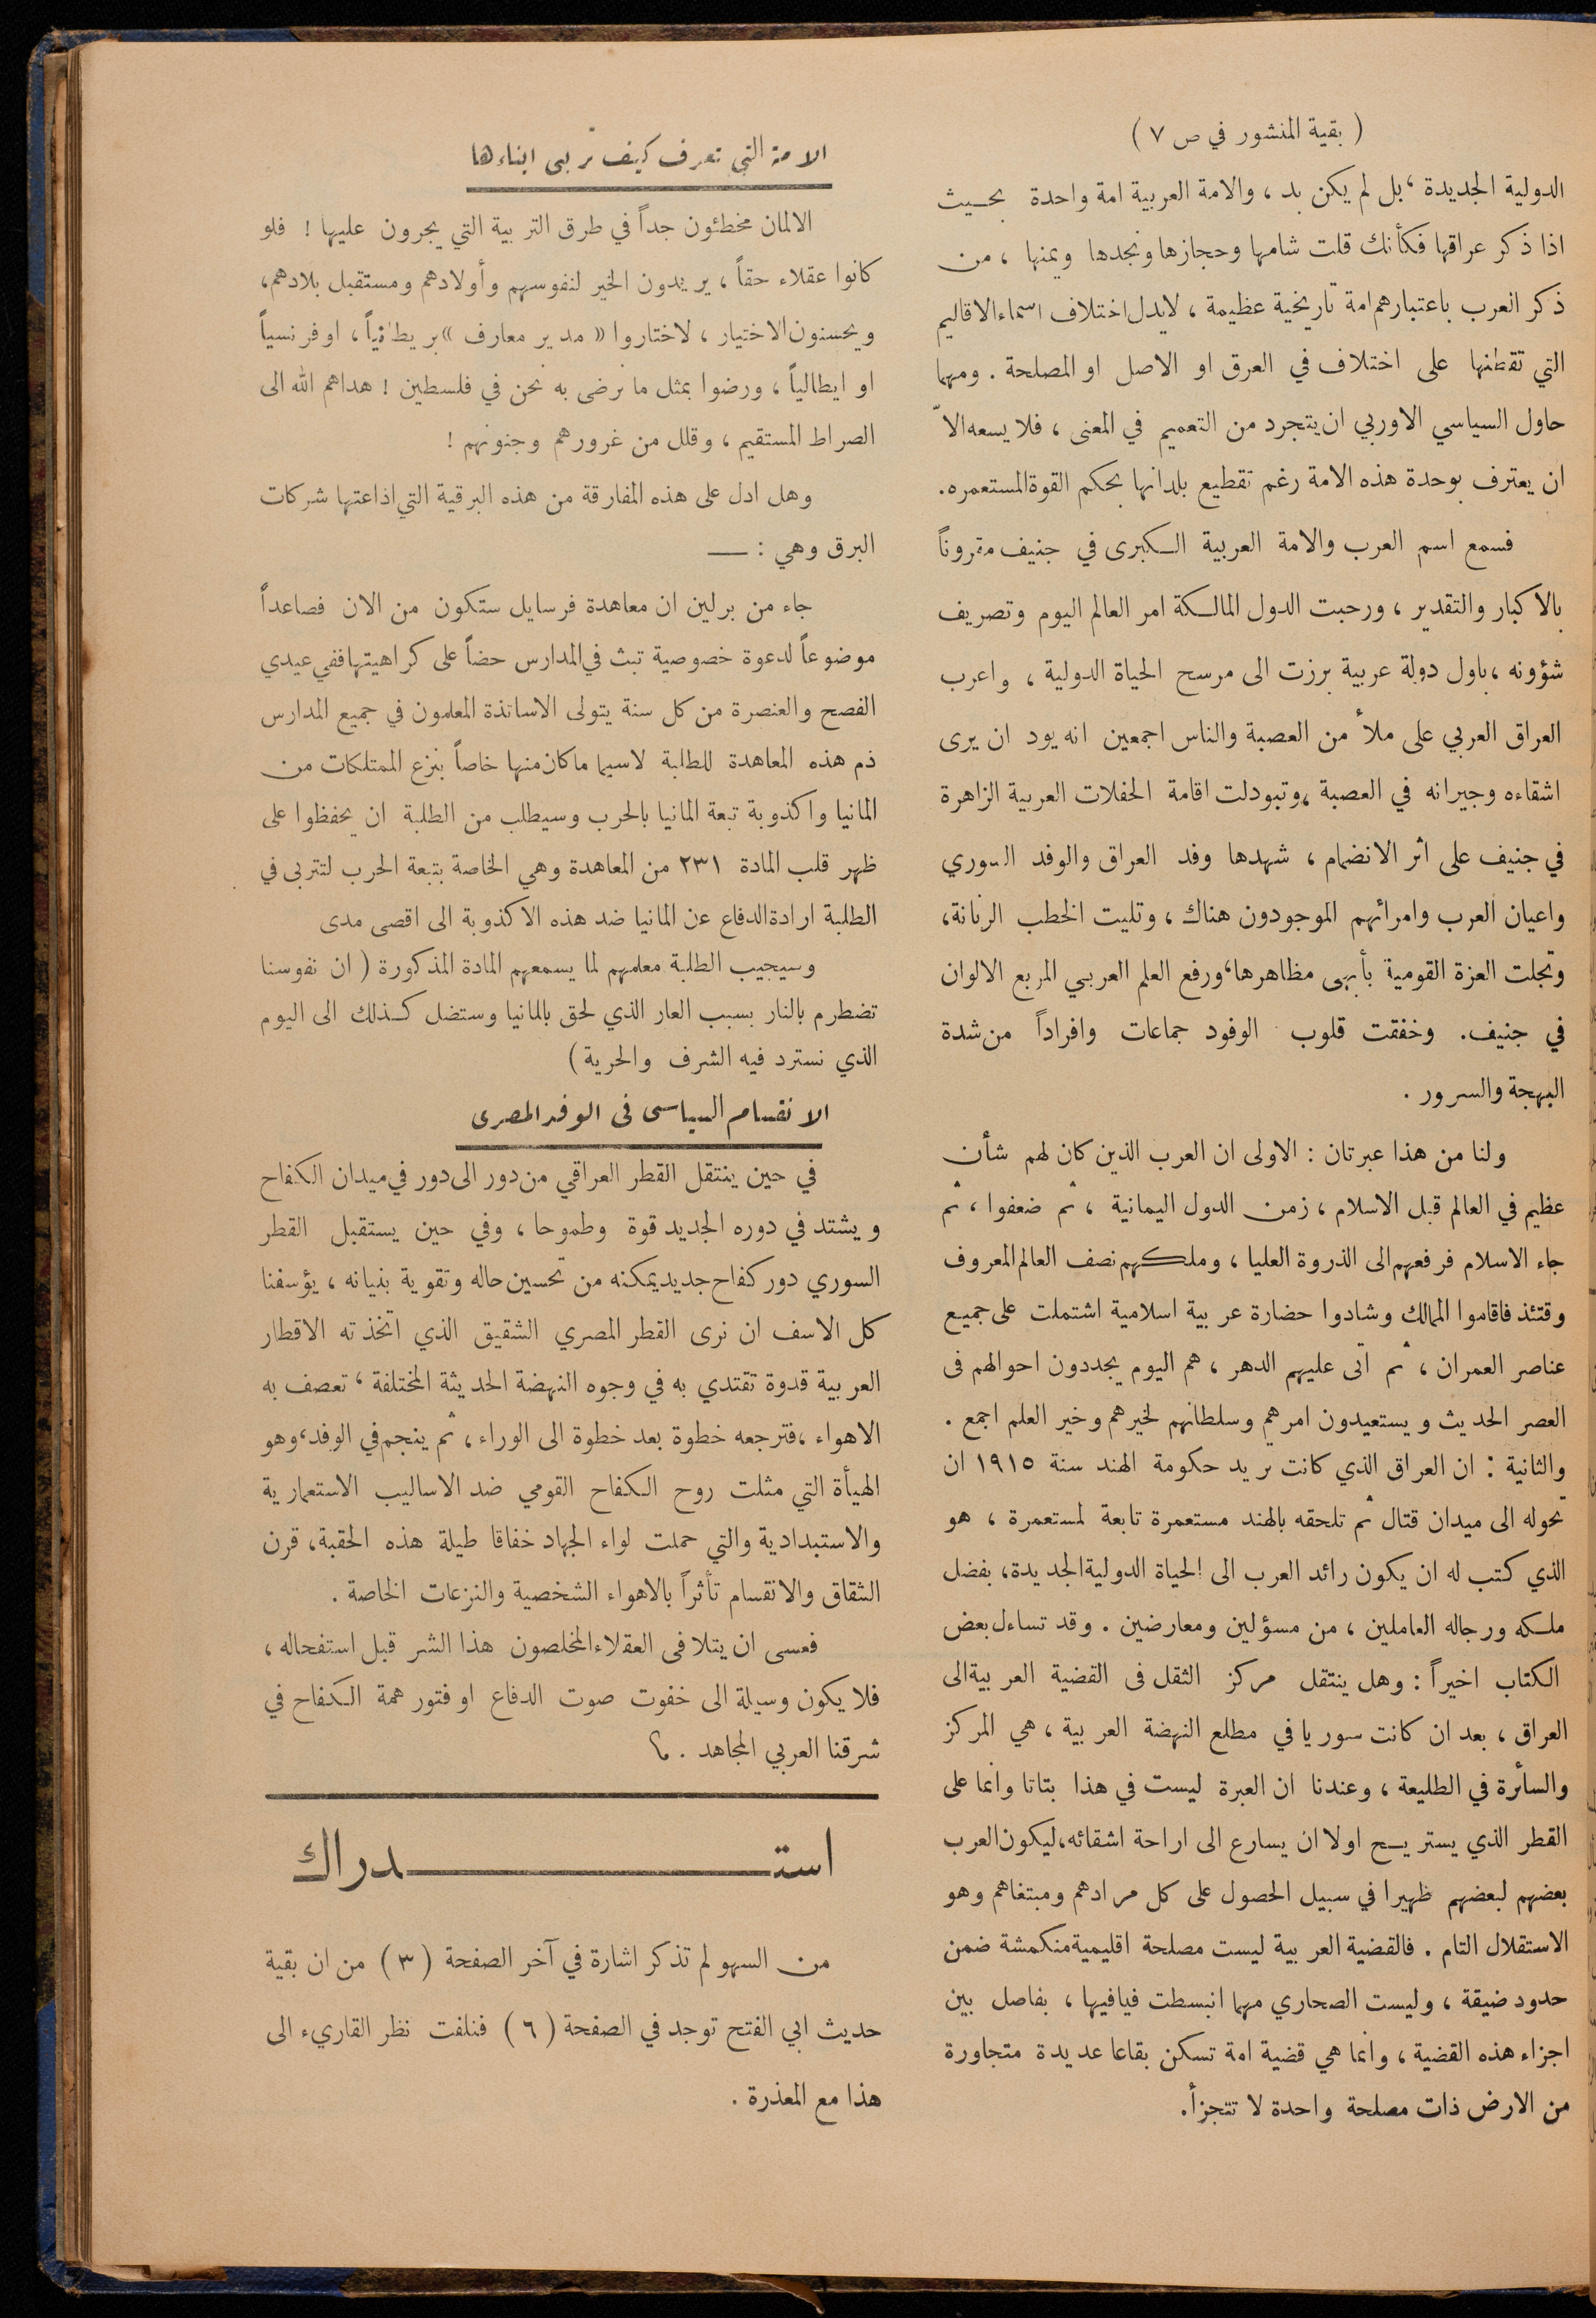 ( بقية المنشور في ص ٧ )
الدولية الجديدة ، بل لم يكن بد ، والامة العربية امة واحدة بحيث
اذا ذكر عراقها فكأنك قلت شامها وحجازها ونجدها ويمنها ، من
ذكر العرب باعتبارهم امة تاريخية عظيمة ، لايدل اختلاف اسماء الاقاليم
التي تقطنها على اختلاف في العرق او الاصل او المصلحة . ومهما
حاول السياسي الاوربي ان يتجرد من التعميم في المعنى ، فلا يسعه الاّ
ان يعترف بوحدة هذه الامة رغم تقطيع بلدانها بحكم القوة المستعمره.
فسمع اسم العرب والامة العربية الكبرى في جنيف مقروناً
بالاكبار والتقدير ، ورحبت الدول المالكة امر العالم اليوم وتصريف
شؤونه ، باول دولة عربية برزت الى مرسح الحياة الدولية ، واعرب
العراق العربي على ملأ من العصبة والناس اجمعين انه يود ان يرى
اشقاءه وجيرانه في العصبة ، وتبودلت اقامة الحفلات العربية الزاهرة
في جنيف على اثر الانضمام ، شهدها وفد العراق والوفد السوري
واعيان العرب وامرائهم الموجودون هناك ، وتليت الخطب الرنانة ،
وتجلت العزة القومية بأبهى مظاهرها ، ورفع العلم العربي المربع الالوان
في جنيف. وخفقت قلوب الوفود جماعات وافراداً من شدة
البهجة والسرور .
ولنا من هذا عبرتان : الاولى ان العرب الذين كان لهم شأن
عظيم في العالم قبل الاسلام ، زمن الدول اليمانية ، ثم ضعفوا ، ثم
جاء الاسلام فرفعهم الى الذروة العليا ، وملكهم نصف العالم المعروف
وقتئذ فاقاموا الممالك وشادوا حضارة عربية اسلامية اشتملت على جميع
عناصر العمران ، ثم أتى عليهم الدهر ، هم اليوم يجددون احوالهم فى
العصر الحديث ويستعيدون امرهم وسلطانهم لخيرهم وخير العلم اجمع .
والثانية : ان العراق الذي كانت تريد حكومة الهند سنة ١٩١٥ ان
تحوله الى ميدان قتال ثم تلحقه بالهند مستعمرة تابعة لمستعمرة ، هو
الذي كتب له ان يكون رائد العرب الى الحياة الدولية الجديدة ، بفضل
ملكه ورجاله العاملين ، من مسؤلين ومعارضين . وقد تساءل بعض
الكتاب اخيراً : وهل ينتقل مركز الثقل فى القضية العربية الى
العراق ، بعد ان كانت سوريا في مطلع النهضة العربية ، هي المركز
والسأرة في الطليعة ، وعندنا ان العبرة ليست في هذا بتاتا وانما على
القطر الذي يستريح اولا ان يسارع الى اراحة اشقائه ، ليكون العرب
بعضهم لبعضهم ظهيرا في سبيل الحصول على كل مرادهم ومبتغاهم وهو
الاستقلال التام . فالقضية العربية ليست مصلحة اقليمية منكمشة ضمن
حدود ضيقة ، وليست الصحاري مهما انبسطت فيافيها ، بفاصل بين
اجزاء هذه القضية ، وانما هي قضية امة تسكن بقاعا عديدة متجاورة
من الارض ذات مصلحة واحدة لا تتجزأ.
الامة التي تعرف كيف تربى ابناءها
الالمان مخطئون جداً في طرق التربية التي يجرون عليها ! فلو
كانوا عقلاء حقاً ، يريدون الخير لنفوسهم وأولادهم ومستقبل بلادهم ،
ويحسنون الاختيار ، لاختاروا « مدير معارف » بريطانياً ، او فرنسياً
او ايطالياً ، ورضوا بمثل ما نرضى به نحن في فلسطين ! هداهم الله الى
الصراط المستقيم ، وقلل من غرورهم وجنونهم !
وهل ادل على هذه المفارقة من هذه البرقية التي اذاعتها شركات
البرق وهي : —
جاء من برلين ان معاهدة فرسايل ستكون من الان فصاعداً
موضوعاً لدعوة خصوصية تبث في المدارس حضاً على كراهيتها ففي عيدي
الفصح والعنصرة من كل سنة يتولى الاساتذة المعلمون في جميع المدارس
ذم هذه المعاهدة للطلبة لاسيما ما كان منها خاصاً بنزع الممتلكات من
المانيا واكذوبة تبعة المانيا بالحرب وسيطلب من الطلبة ان يحفظوا على
ظهر قلب المادة ٢٣١ من المعاهدة وهي الخاصة بتبعة الحرب لتتربى في
الطلبة ارادة الدفاع عن المانيا ضد هذه الاكذوبة الى اقصى مدى
وسيجيب الطلبة معلمهم لما يسمعهم المادة المذكورة ( ان نفوسنا
تضطرم بالنار بسبب العار الذي لحق بالمانيا وستضل كذلك الى اليوم
الذي نسترد فيه الشرف والحرية )
الانقسام السياسى فى الوفد المصرى
في حين ينتقل القطر العراقي من دور الى دور في ميدان الكفاح
ويشتد في دوره الجديد قوة وطموحا ، وفي حين يستقبل القطر
السوري دور كفاح جديد يمكنه من تحسين حاله وتقوية بنيانه ، يؤسفنا
كل الاسف ان نرى القطر المصري الشقيق الذي اتخذته الاقطار
العربية قدوة تقتدي به في وجوه النهضة الحديثة المختلفة ، تعصف به
الاهواء ، فترجعه خطوة بعد خطوة الى الوراء ، ثم ينجم في الوفد ، وهو
الهيأة التي مثلت روح الكفاح القومي ضد الاساليب الاستعمارية
والاستبدادية والتي حملت لواء الجهاد خفاقا طيلة هذه الحقبة ، قرن
الشقاق والانقسام تأثراً بالاهواء الشخصية والنزعات الخاصة .
فعسى ان يتلافى العقلاء المخلصون هذا الشر قبل استفحاله ،
فلا يكون وسيلة الى خفوت صوت الدفاع او فتور همة الكفاح في
شرقنا العربي المجاهد .
استدراك
من السهو لم تذكر اشارة في آخر الصفحة ( ٣ ) من ان بقية
حديث ابي الفتح توجد في الصفحة ( ٦ ) فنلفت نظر القاريء الى
هذا مع المعذرة .